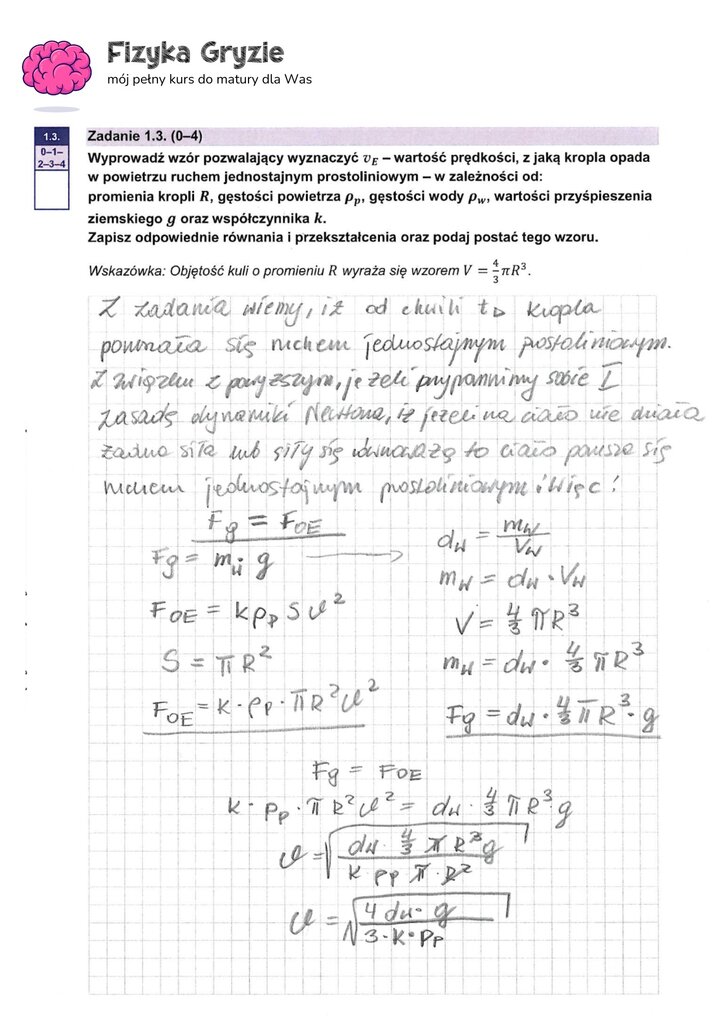 Fizyka Gryzie
mój pełny kurs do matury dla Was
1.3.
0–1–
2–3–4
Zadanie 1.3. (0–4)
Wyprowadź wzór pozwalający wyznaczyć v_E – wartość prędkości, z jaką kropla opada
w powietrzu ruchem jednostajnym prostoliniowym – w zależności od:
promienia kropli R, gęstości powietrza ρ_p, gęstości wody ρ_w, wartości przyśpieszenia
ziemskiego g oraz współczynnika k.
Zapisz odpowiednie równania i przekształcenia oraz podaj postać tego wzoru.
Wskazówka: Objętość kuli o promieniu R wyraża się wzorem V = 4/3 πR³.
Z zadania wiemy, iż od chwili t_D kropla
poruszała się ruchem jednostajnym prostoliniowym.
Z związku z powyższym, jeżeli przypomnimy sobie I
zasadę dynamiki Newtona, iż jeżeli na ciało nie działa
żadna siła lub siły się równoważą to ciało porusza się
ruchem jednostajnym prostoliniowym więc:
Fg = F_OE
Fg = m_w g
F_OE = kρ_p S v²
S = πR²
F_OE = k · ρ_p · πR² v²
d_w = m_w / V_w
m_w = d_w · V_w
V = 4/3 πR³
m_w = d_w · 4/3 πR³
Fg = d_w · 4/3 πR³ · g
Fg = F_OE
k · ρ_p · πR² v² = d_w · 4/3 πR³ g
v = √(d_w · 4/3 π R³ g / k ρ_p π · R²)
v = √(4 d_w · g / 3 · k · ρ_p)